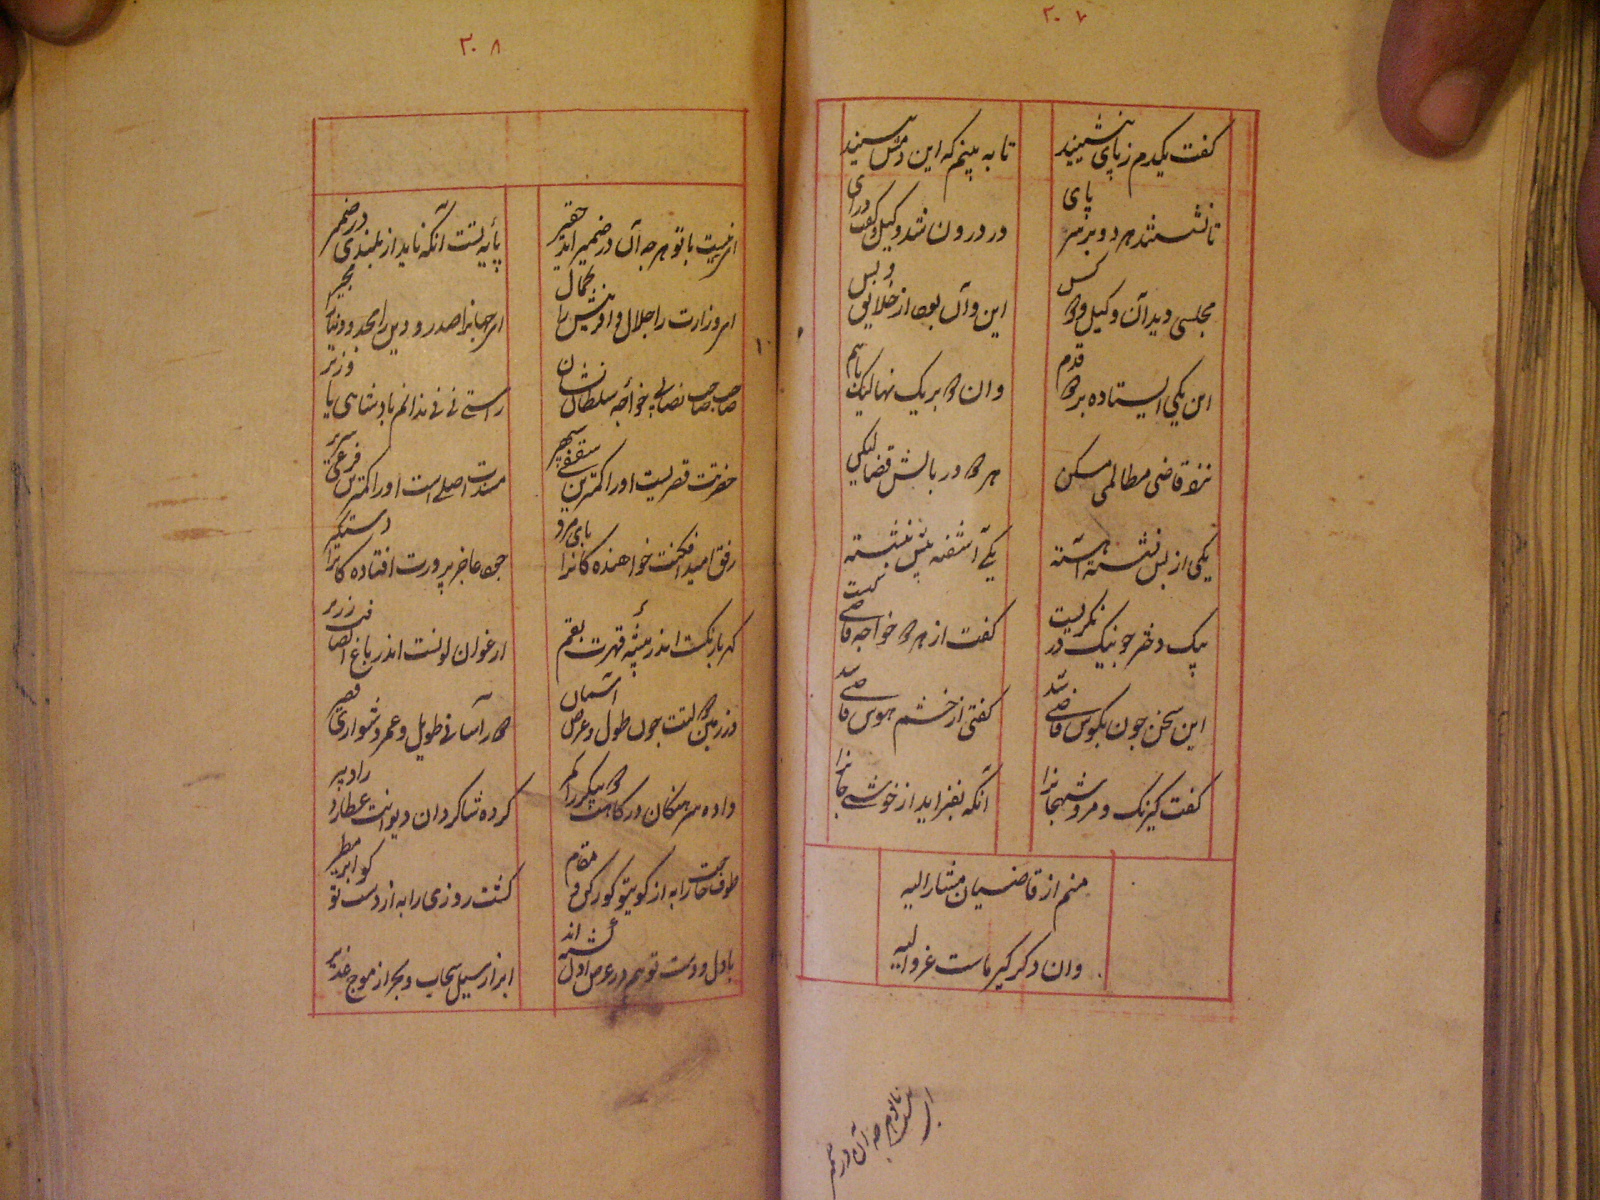 ۲۰۷
گفت یکدم ز پای ننشینید
تا به بینم که این دمش بینید
تا نشستند هر دو بر سر پای
در درون شد وکیل و گفت درای
مجلسی دید آن وکیل و کس
این و آن بود از خلایق و بس
این یکی ایستاده بر قدم
وان بر یک نهالیک باهم
نزد قاضی مطالمی مسکن
هر در بالش قضا لیکی
یکی از بس نشسته
یکی آشفته پیش بنشسته
یک دختر جو نیک در نگریست
گفت از هر خواجه قاضی کیست
این سخن چون بگوش قاضی شد
گفتی از خشم هوش قاضی شد
گفت کیرنک و مرو شهجانرا
آنکه بفزاید از خوشی جانرا
منم از قاضیان مشار الیه
وان دکر کیر ماست غر والیه
۲۰۸
ای نیست با تو هر چه آن در ضمیر آید حقیر
پایه تست آنکه ناید از بلندی در ضمیر
ای وزارت را جلال و آفرینش را کمال
ای جهانرا صدر و دین را مجد و دنیا را مجیر
صاحب صاحب نصابی خواجه سلطان نشان
راستی نی نی ندانم پادشاهی یا وزیر
حضرتت قصریست او را کمترین سقفی سپهر
مسندت اصلی است او را کمترین فرعی سریر
رفق امید افکنت خواهنده کانرا پای مرد
جود عاجز پرورت افتاده کانرا دستگیر
کهربا رنگت اندر بیشه قهرت بقم
ارغوان لونست اندر باغ انصافت زریر
در زمین چون طول و عرض آسمان
آسانی طویل و عمر دشواری قصیر
داده سرهنگان درکاهت پیکر را کمر
کرده شاکردان دیوانت عطارد را دبیر
طوف حاجت را به از کویتو کو رکن و مقام
کشت روزی را به از دست تو کو ابر مطیر
با دل و دست تو هم در عرض اول گشته‌اند
ابر از سیل سحاب و بحر از موج غدیر